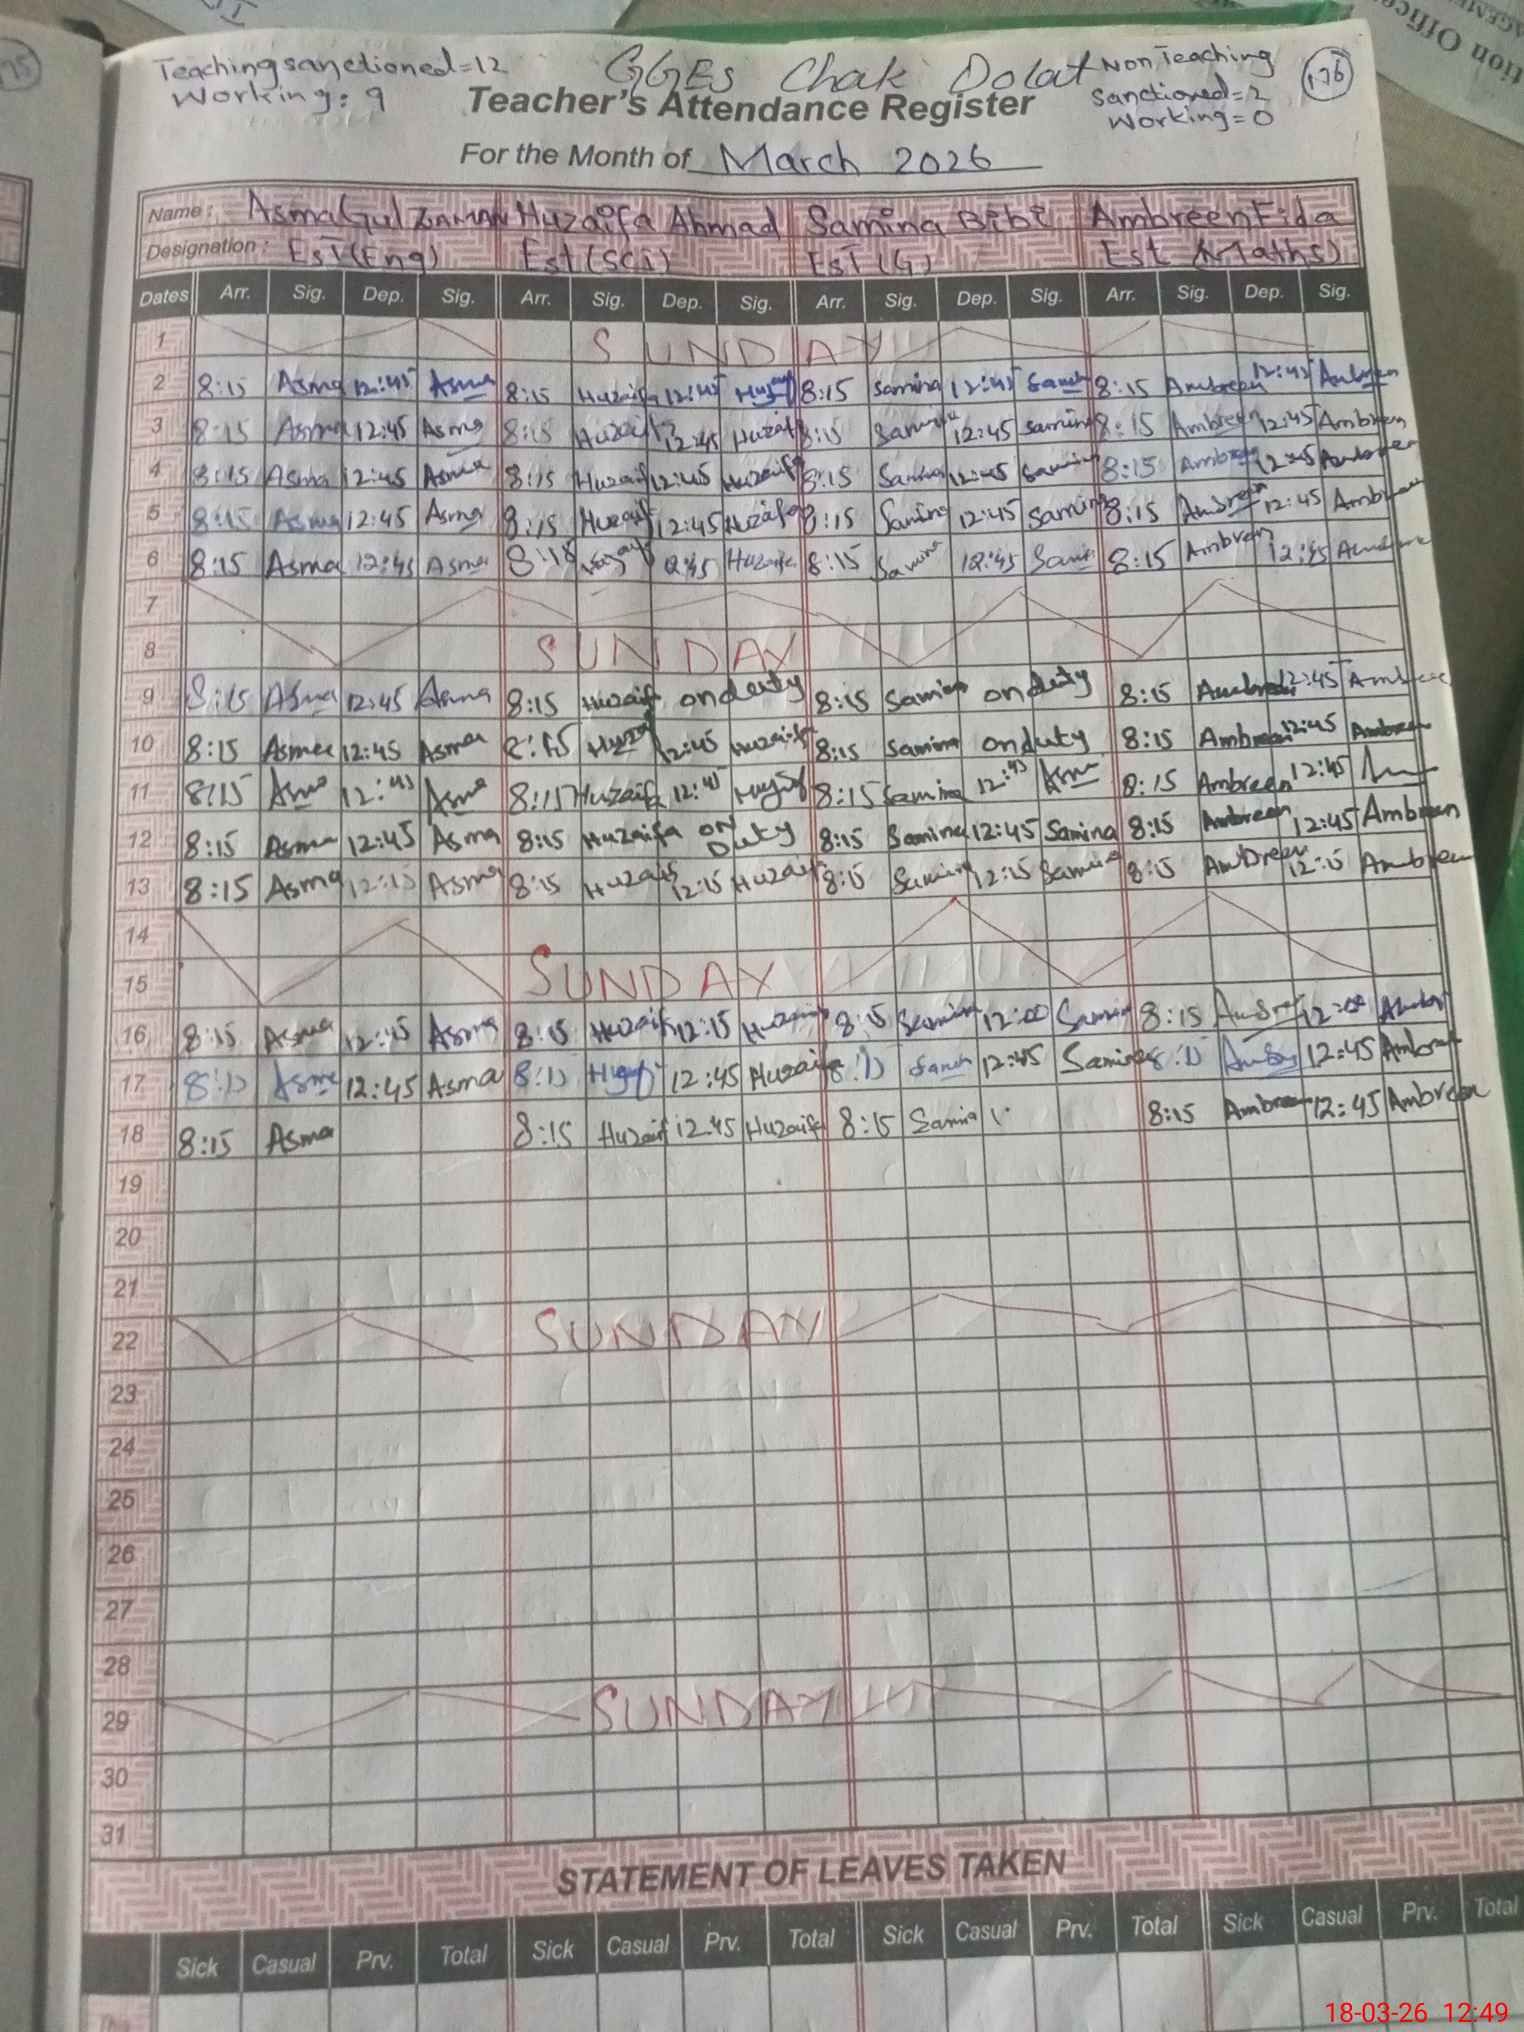 Teaching sanctioned=12 GGEs Chak Dolat Non Teaching 176
Working: 9 Teacher's Attendance Register Sanctioned=2
Working=0
For the Month of March 2026
Name: Asma Gul Zaman Huzaifa Ahmad Samina Bibi Ambreen Fida
Designation: EsT(Eng) Est(sci) EsT(G) Est (Maths)
Dates Arr. Sig. Dep. Sig. Arr. Sig. Dep. Sig. Arr. Sig. Dep. Sig. Arr. Sig. Dep. Sig.
1 SUNDAY
2 8:15 Asma 12:45 Asma 8:15 Huzaifa 12:45 8:15 Samina 12:45 8:15 Ambreen 12:45 Ambreen
3 8:15 Asma 12:45 Asma 8:15 Huzaifa 12:45 Huzaif 8:15 Samina 12:45 Samina 8:15 Ambreen 12:45 Ambreen
4 8:15 Asma 12:45 Asma 8:15 Huzaif 12:45 Huzaifa 8:15 Samina 12:45 Samina 8:15 Ambreen 12:45 Ambreen
5 8:15 Asma 12:45 Asma 8:15 Huzaif 12:45 Huzaifa 8:15 Samina 12:45 Samina 8:15 Ambreen 12:45 Ambreen
6 8:15 Asma 12:45 Asma 8:15 12:45 Huzaifa 8:15 Samina 12:45 Samina 8:15 Ambreen 12:45
7
8 SUNDAY
9 8:15 Asma 12:45 Asma 8:15 Huzaif on duty 8:15 Samina on duty 8:15 Ambreen 12:45 Ambreen
10 8:15 Asma 12:45 Asma 8:15 12:45 Huzaifa 8:15 Samina on duty 8:15 Ambreen 12:45 Ambreen
11 8:15 Asma 12:45 Asma 8:15 Huzaifa 12:45 8:15 Samina 12:45 8:15 Ambreen 12:45
12 8:15 Asma 12:45 Asma 8:15 Huzaifa on Duty 8:15 Samina 12:45 Samina 8:15 Ambreen 12:45 Ambreen
13 8:15 Asma 12:15 Asma 8:15 Huzaif 12:15 Huzaif 8:15 Samina 12:15 Samina 8:15 Ambreen 12:15 Ambreen
14
15 SUNDAY
16 8:15 Asma 12:15 Asma 8:15 Huzaif 12:15 Huzaifa 8:15 Samina 12:00 Samina 8:15 12:00
17 8:15 Asma 12:45 Asma 8:15 12:45 Huzaifa 8:15 12:45 Samina 8:15 12:45
18 8:15 Asma 8:15 Huzaif 12:45 Huzaifa 8:15 Samina 8:15 Ambreen 12:45 Ambreen
19
20
21
22 SUNDAY
23
24
25
26
27
28
29 SUNDAY
30
31
STATEMENT OF LEAVES TAKEN
Sick Casual Prv. Total Sick Casual Prv. Total Sick Casual Prv. Total Sick Casual Prv. Total
18-03-26 12:49